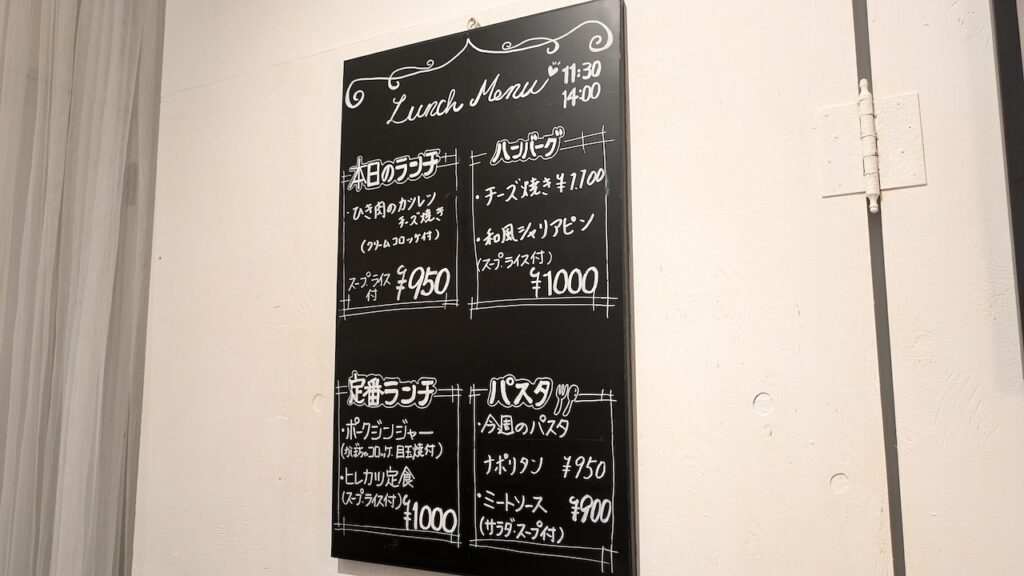 Lunch Menu
11:30
14:00
本日のランチ
・ひき肉のカツレツ
チーズ焼き
(クリームコロッケ付)
スープ・ライス
付
¥950
ハンバーグ
・チーズ焼き ¥1.100
・和風シャリアピン
(スープ・ライス付)
¥1000
定番ランチ
・ポークジンジャー
(かぼちゃコロッケ、目玉焼付)
・ヒレカツ定食
(スープ・ライス付)
¥1000
パスタ
・今週のパスタ
ナポリタン ¥950
・ミートソース ¥900
(サラダ・スープ付)